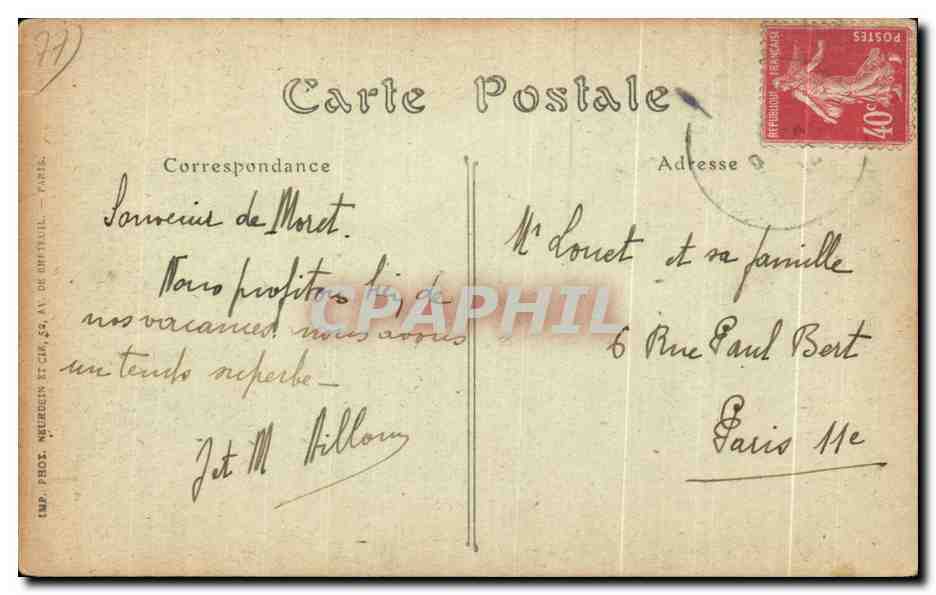 77)
Carte Postale
REPUBLIQUE FRANÇAISE
POSTES
40c
Correspondance
Adresse
Souvenir de Moret.
Nous profitons bien de
nos vacances. nous avons
un temps superbe –
J et M
Mr Louet et sa famille
6 Rue Paul Bert
Paris 11e
IMP. PHOT. NEURDEIN ET CIE, 52, AV. DE BRETEUIL. — PARIS.
CPAPHIL